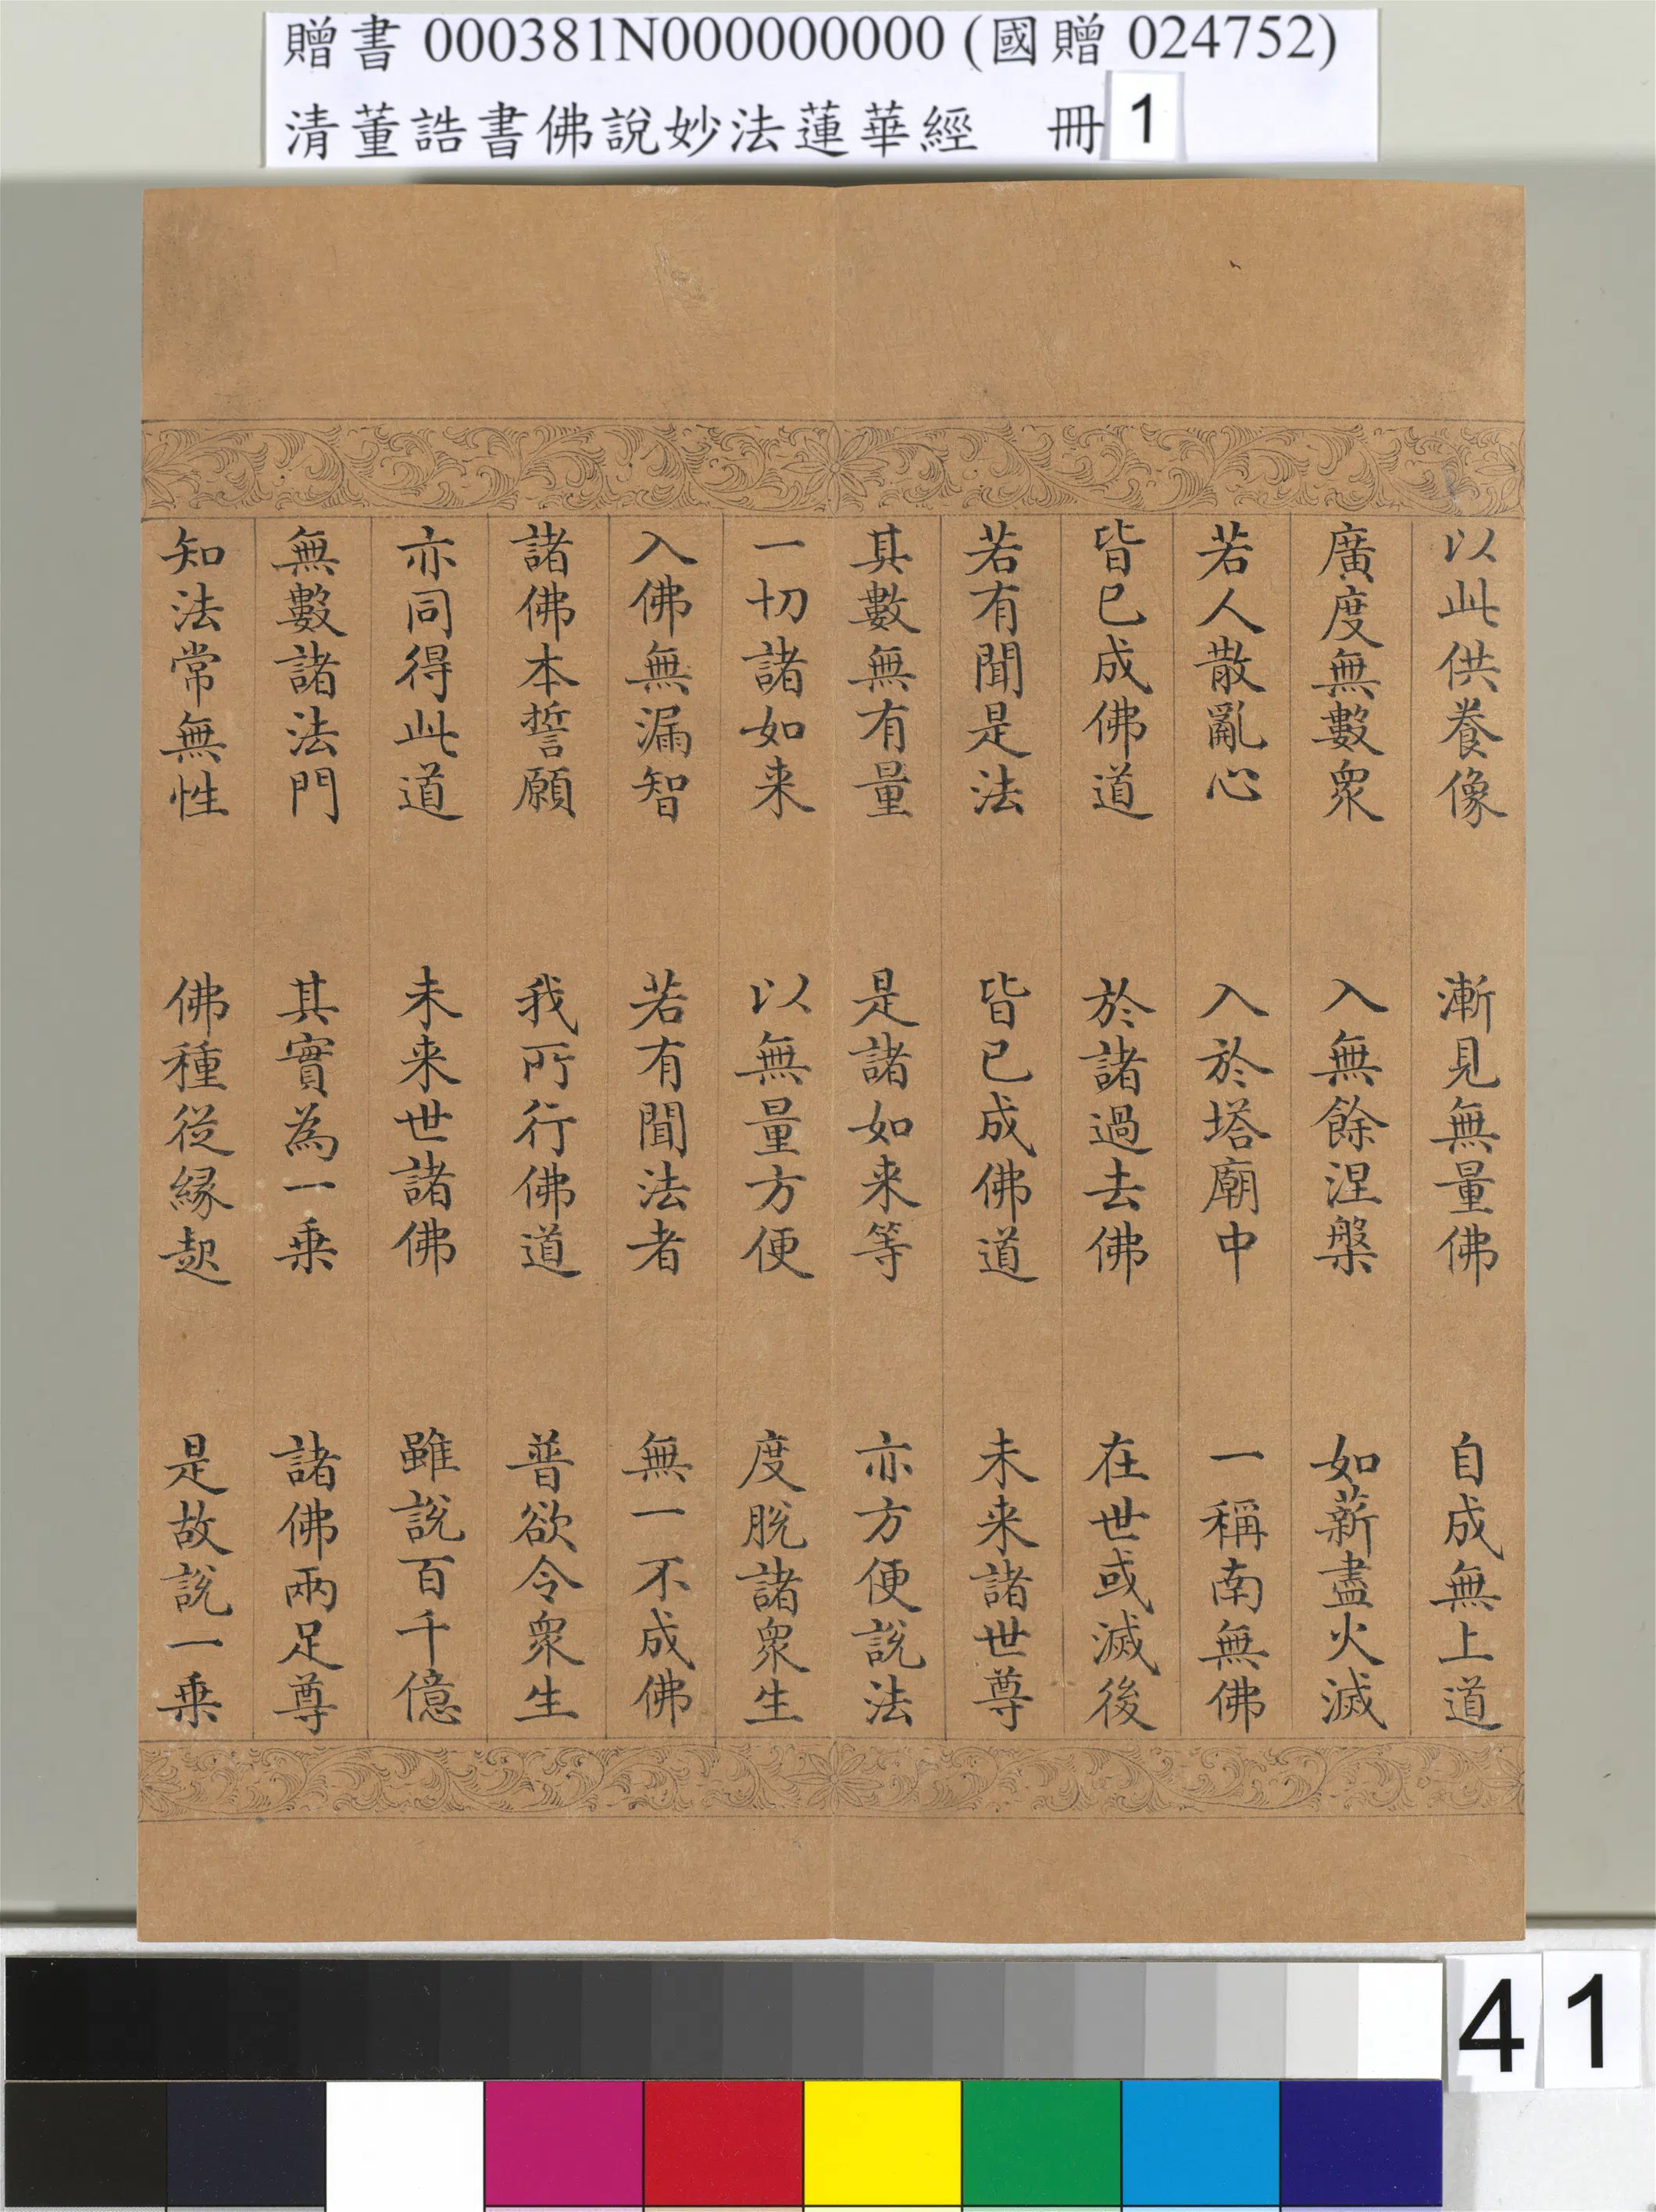 贈書 000381N000000000 (國贈 024752)
清董誥書佛說妙法蓮華經 冊 1
以此供養像 漸見無量佛 自成無上道
廣度無數眾 入無餘涅槃 如薪盡火滅
若人散亂心 入於塔廟中 一稱南無佛
皆已成佛道 於諸過去佛 在世或滅後
若有聞是法 皆已成佛道 未来諸世尊
其數無有量 是諸如来等 亦方便說法
一切諸如来 以無量方便 度脫諸眾生
入佛無漏智 若有聞法者 無一不成佛
諸佛本誓願 我所行佛道 普欲令眾生
亦同得此道 未来世諸佛 雖說百千億
無數諸法門 其實為一乗 諸佛兩足尊
知法常無性 佛種從緣起 是故說一乗
41